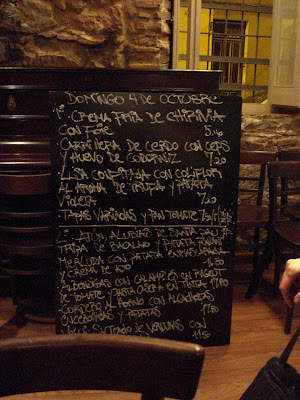 DOMINGO 4 DE OCTUBRE
1º · CREMA FRIA DE CHIRIVIA
CON FOIE 5.40
CARRILLERA DE CERDO CON CEPS
Y HUEVO DE CODORNIZ 7.20
· LISA CONFITADA CON COLIFLOR
AL AROMA DE TRUFA Y PATATA
VIOLETA 7.20
· TAPAS VARIADAS Y PAN TOMATE
2º · ATUN ALUBIAS DE SANTA PAU
TRIPA DE BACALAO Y PATATA
MERLUZA CON PATATA
Y CREMA DE AJO
ALBONDIGAS CON CALAMARES EN
DE TOMATE PASTA CASERA EN TINTA 9.80
CORDERO AL HORNO CON ALCACHOFAS
ENCEBOLLADAS Y PATATAS 9.80
DE VERDURAS CON
11.50